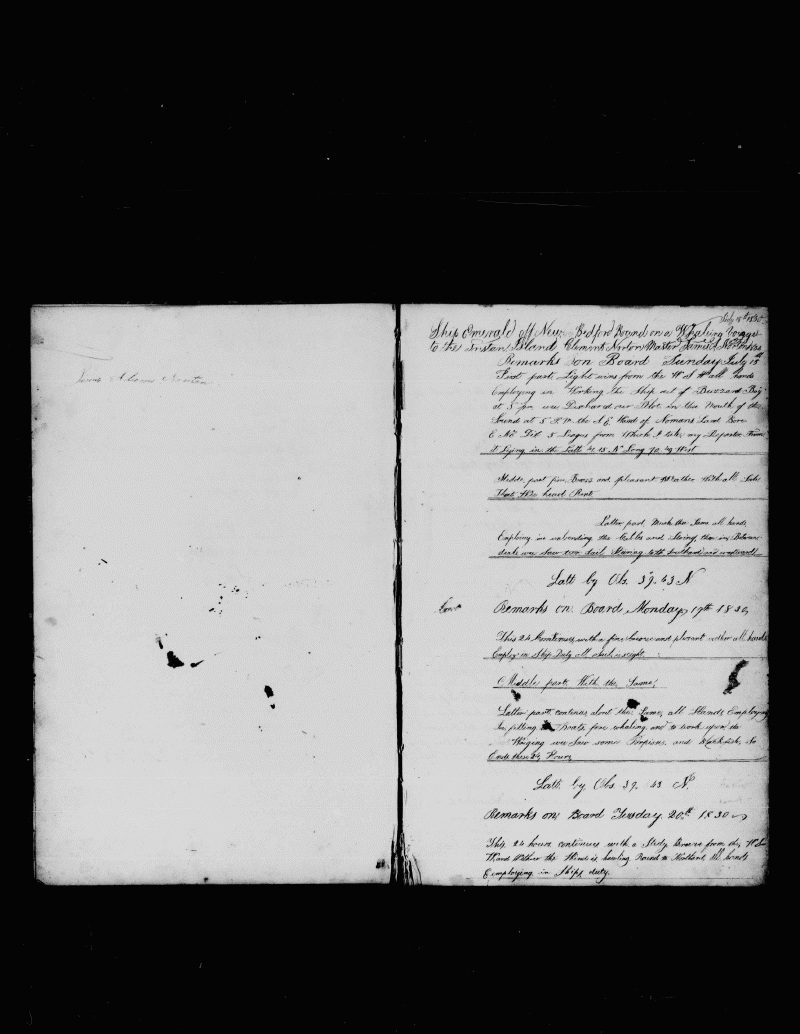 July 18th 1830
Ship Emerald off New Bedford Bound on a Whaling Voyage
to the Tristan Island Clement Norton Master
Remarks on Board Sunday July 18th
First part Light wins from the W S W all hands
Employing in Working the Ship out of Buzzard Bay
at 3 pm we Dischared our Pilot in the Mouth of the
Sound at 5 P.M. the N E Head of Nomans Land Bore
Dist 8 Leagues from Which I take my Departure
Lying in the Latt 41.15 N Long 70 West
Middle part fine Breess and pleasant Weather With all Sale
Latter part Much the Same all hands
Employ in unbending the Cables and Stoing them in Between
decks we Saw two Sail
Latt by Obs 39.43 N
Remarks on Board Monday 19th 1830
This 24 Comtenues with a fine breese and plesant wether all hands
Employ in Ship Duty all which is right
Middle part With the Same
Latter part continues about the Same all Hands Employing
In fitting Boats fore whaling and to work upon the
we Saw some Porpises and Blackfish So
Ends these 24 Hours
Latt by Obs 39. 43 N
Remarks on Board Tusday 20th 1830
This 24 hours continues with a Stedy Breese from the
Ward Wether the Wind is hauling Round to all hands
Employing in Ships duty.